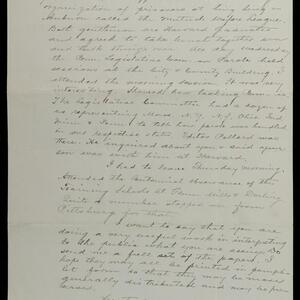 organization of prisoners at Sing Sing &
Auburn called the Mutual Welfare League.
Both gentlemen are Harvard graduates
and agreed to take lunch together
and talk things over. All day Wednesday
the Penn. Legislative Com. on Parole held
sessions at the City & County Building. I
attended the morning session. It was very
interesting. Showed how looking
The Legislative Committee had a dozen of
us representing Mass. N.Y. N.J. Ohio Ind
Minn & Penn. to tell how parole was handled
in our respective states. Editor Pollard was
there. He inquired about you & said your
son was with him at Harvard.
I had to leave Thursday morning.
Attended the Centennial observance of the
Training Schools at Glenn Mills & Darling
Quite a number stopped over from
Pittsburg for that.
I want to say that you are
doing a very useful work in interpreting
to the public what you are seeing. Do
send me a full set of the papers. I
hope they may all be printed in pamph-
let form so that they may be more
generally distributed and may be pre-
served.